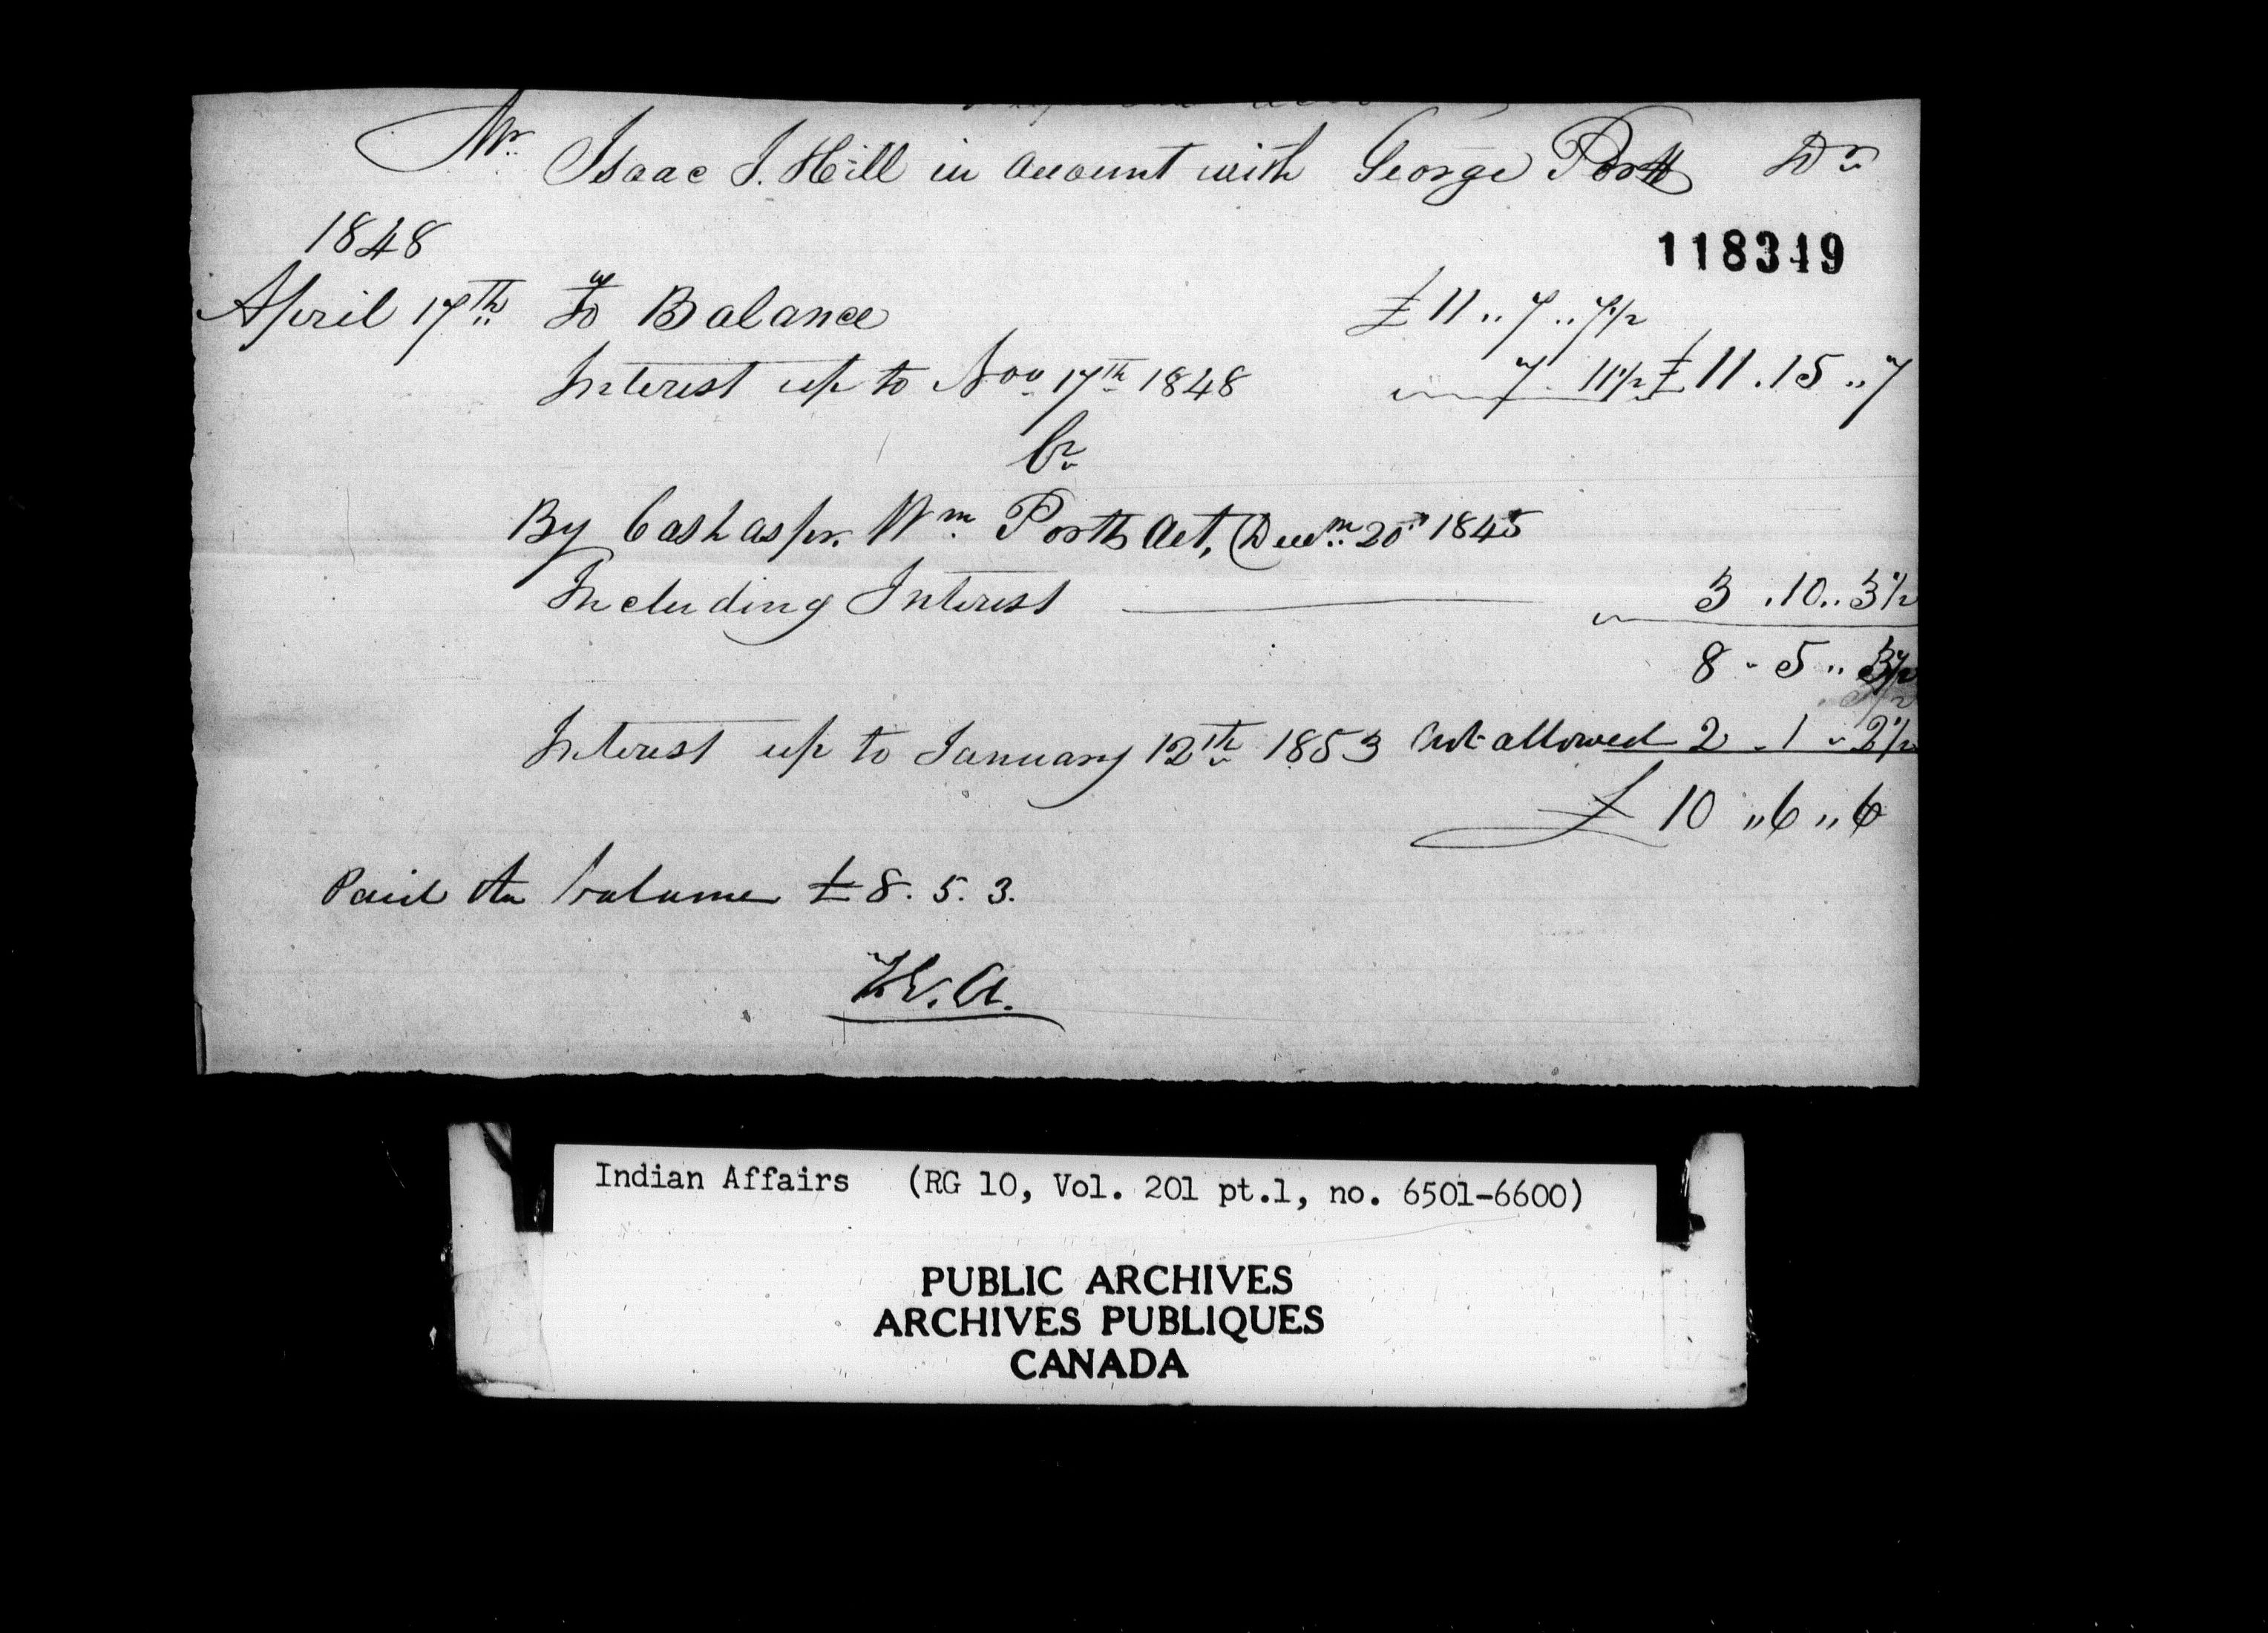 Mr. Isaac J. Hill in account with George Portt Dr
118319
1848
April 17th To Balance £11 .. 7 .. 7½
Interest up to Nov 17th 1848 7 . 11½ £11 . 15 .. 7
Cr
By Cash as pr. Wm. Portts Act, Decm. 20th 1845
Including Interest 3 . 10 .. 3½
8 . 5 .. 3½
Interest up to January 12th 1853 not allowed 2 . 1 . 2½
£ 10 .. 6 .. 6
Paid the balance £8. 5. 3.
Indian Affairs (RG 10, Vol. 201 pt.1, no. 6501-6600)
PUBLIC ARCHIVES
ARCHIVES PUBLIQUES
CANADA